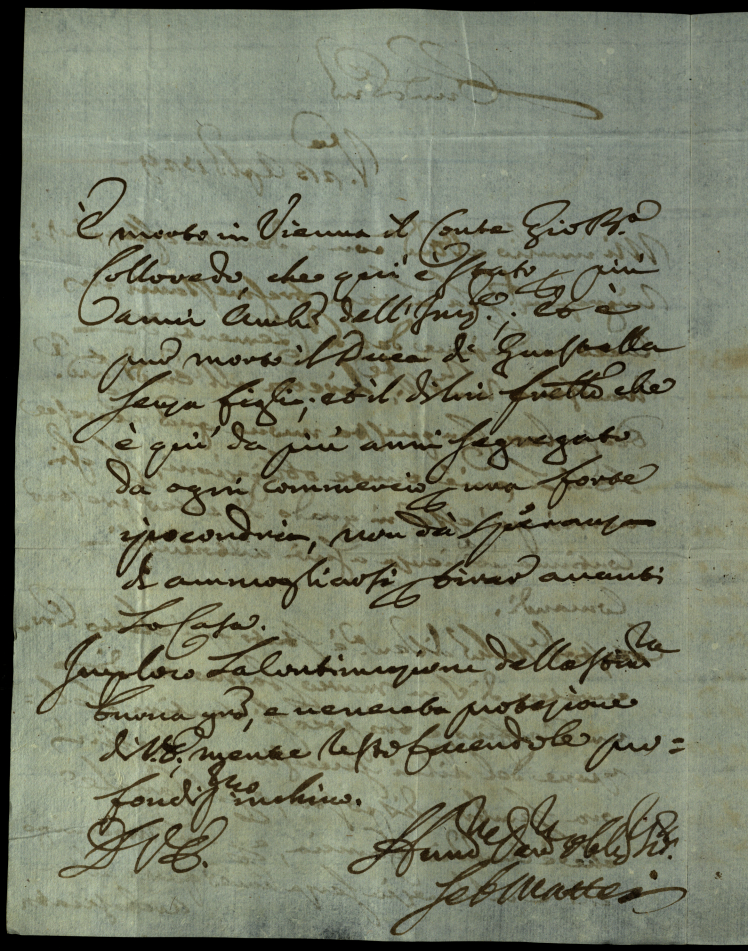 È morto in Vienna il Conte Gio B.a
Colloredo, che qui è stato p più
anni Amb.r dell'Imp.e; ed è
pure morto il Duca di Guastalla
senza figli; ed il di lui fratello che
è qui da più anni segregato
da ogni commercio p una forte
ipocondria, non dà speranza
di ammogliarsi p tirar avanti
la Casa.
Imploro la continuazione della stim.ma
buona gra, e venerata protezione
di V.E., mentre resto facendole pro=
fondiss.mo inchino.
D V E.
Seb Mattei